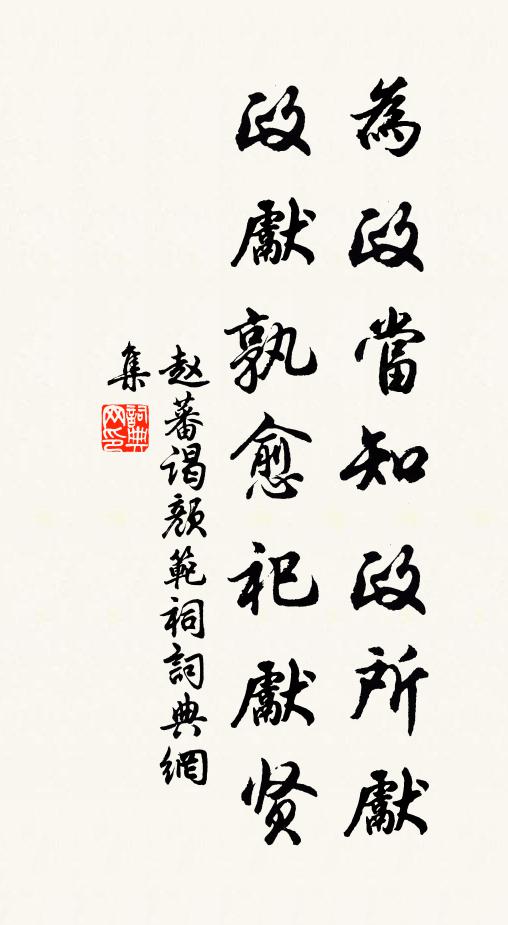 為政當知政所獻
政獻孰愈祀獻贤
赵蕃谒颜範祠詞典網
集
詞典网印